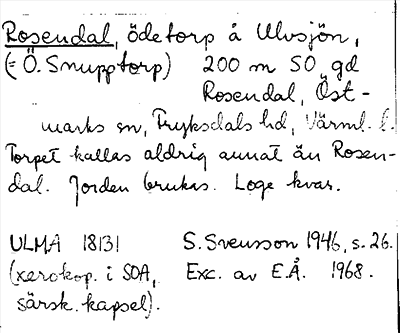 Rosendal, ödetorp å Ulvsjön,
(= Ö. Snupptorp) 200 m SO gd
Rosendal, Öst-
marks sn, Fryksdals hd, Värml. l.
Torpet kallas aldrig annat än Rosen-
dal. Jorden brukas. Loge kvar.
ULMA 18131 S. Svensson 1946, s. 26.
(xerokop. i SOA, Exc. av E.Å. 1968.
särsk. kapsel).